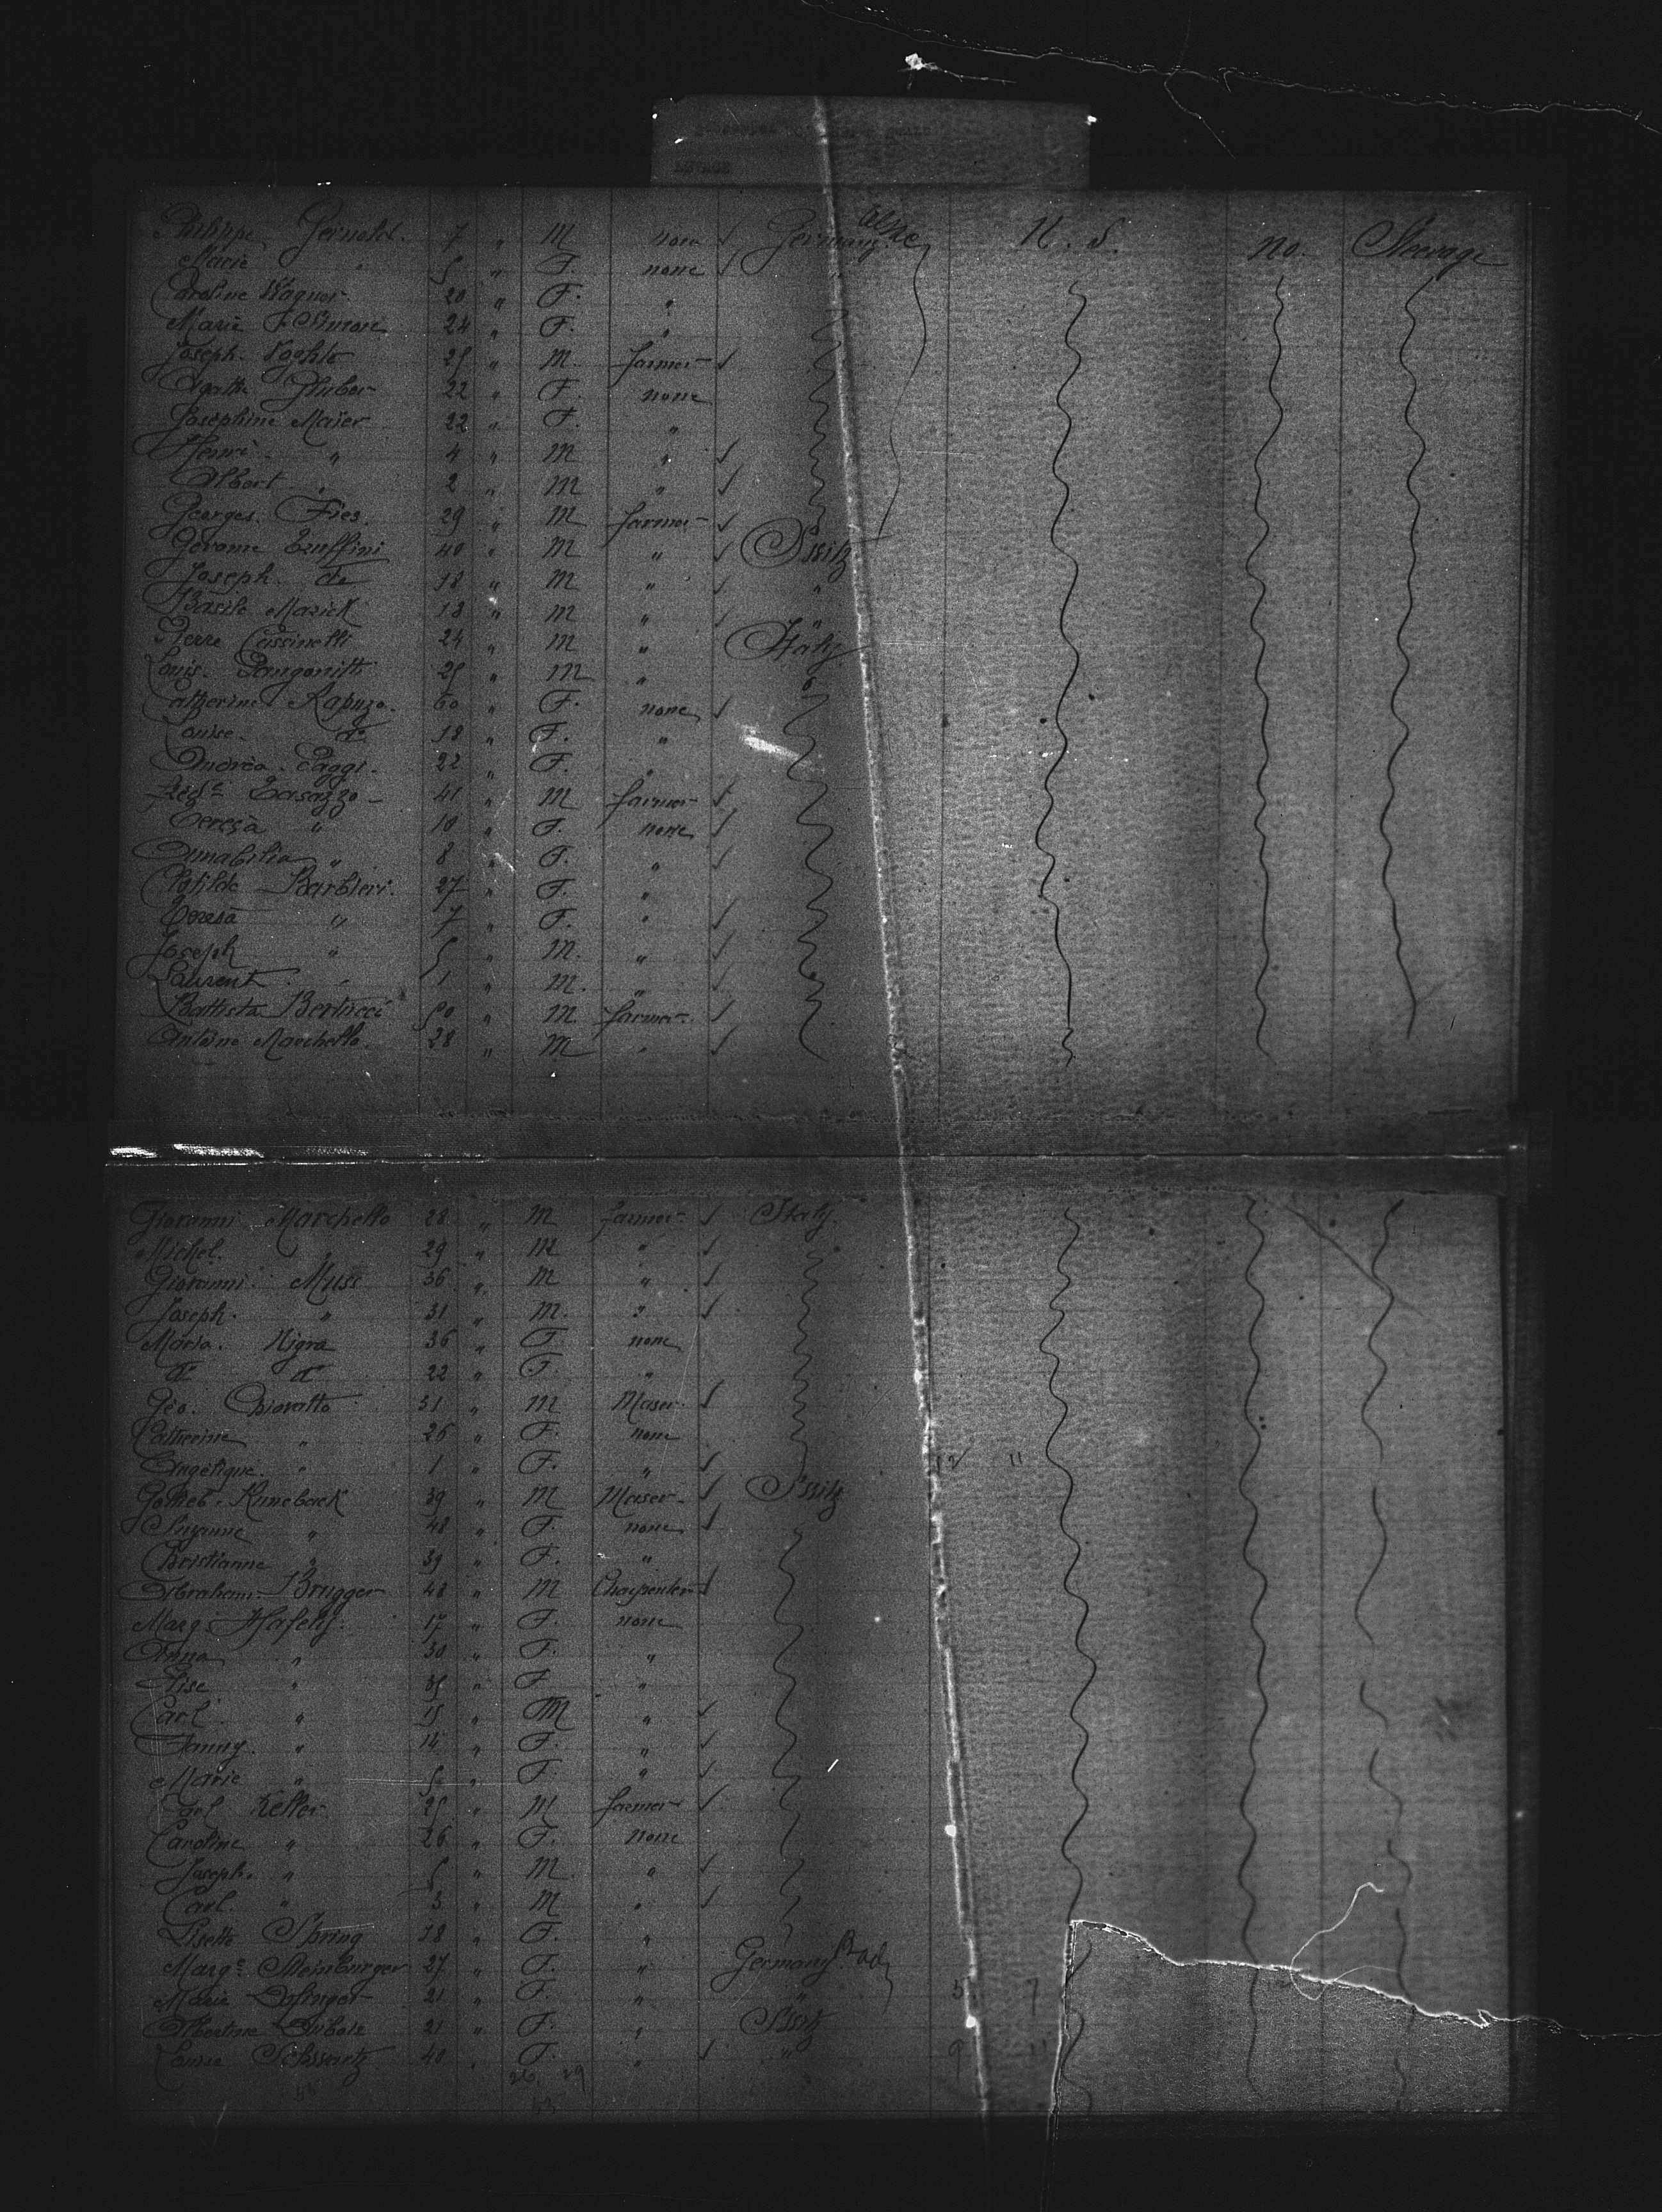 Philippe Gernolet. 7 " M none Germany. U. S. no. Steerage
Marie " 5 " F. none "
Caroline Wagner 20 " F. "
Marie F. Simon 24 " F. "
Joseph 25 " M. farmer
Agathe Huber 22 " F. none
Josephine Maier 22 " F. "
Henri " 4 " M "
Albert " 2 " M "
Georges Fies. 29 " M farmer
Gerome Truffini 40 " M " Switz
Joseph. do 18 " M " "
Basile Marick 18 " M "
Pierre Cassinelli 24 " M " Italy
Louis 25 " M "
Catherine Rapuzo. 60 " F. none
Louise do 18 " F. "
Andrea Paggi. 22 " F. "
41 " M farmer
Teresa " 10 " F. none
Annabilia " 8 " F. "
Clotilde Barbieri. 27 " F. "
Teresa " 7 " F. "
Joseph " 5 " M. "
Laurent " 1 " M. "
Battista Bertucci 50 " M farmer
Antoine Marchello. 28 " M "
Giovanni Marchello 28 " M farmer Italy
Michel. " 29 " M "
Giovanni Muss 36 " M "
Joseph. " 31 " M. "
Maria. Nigra 36 " F. none
do do 22 " F. "
Geo. Chioratto 31 " M Maser
Catherine " 26 " F. none
Angelique. " 1 " F. " 12 11
Gottlieb Kuneback 39 " M Maser Switz
Suzanne " 48 " F. none
Christianne " 39 " F. "
Abraham Brugger 48 " M Charpenter
Marg. Hafely. 17 " F. none
Anna " 30 " F. "
Elise " 35 " F. "
Carl " 15 " M "
Fanny. " 14 " F. "
Marie " 5 " F. "
Carl Keller 25 " M farmer
Caroline " 26 " F. none
Joseph. " 5 " M "
Carl. " 3 " M "
Lisette Spring 18 " F. "
Marg. Steinburger 27 " F. " Germany Bad
Marie 21 " F. " " 5 7
Albertine Dubois 21 " F. " Switz
Louise Schwartz 40 " F. " " 9 11
26. 29